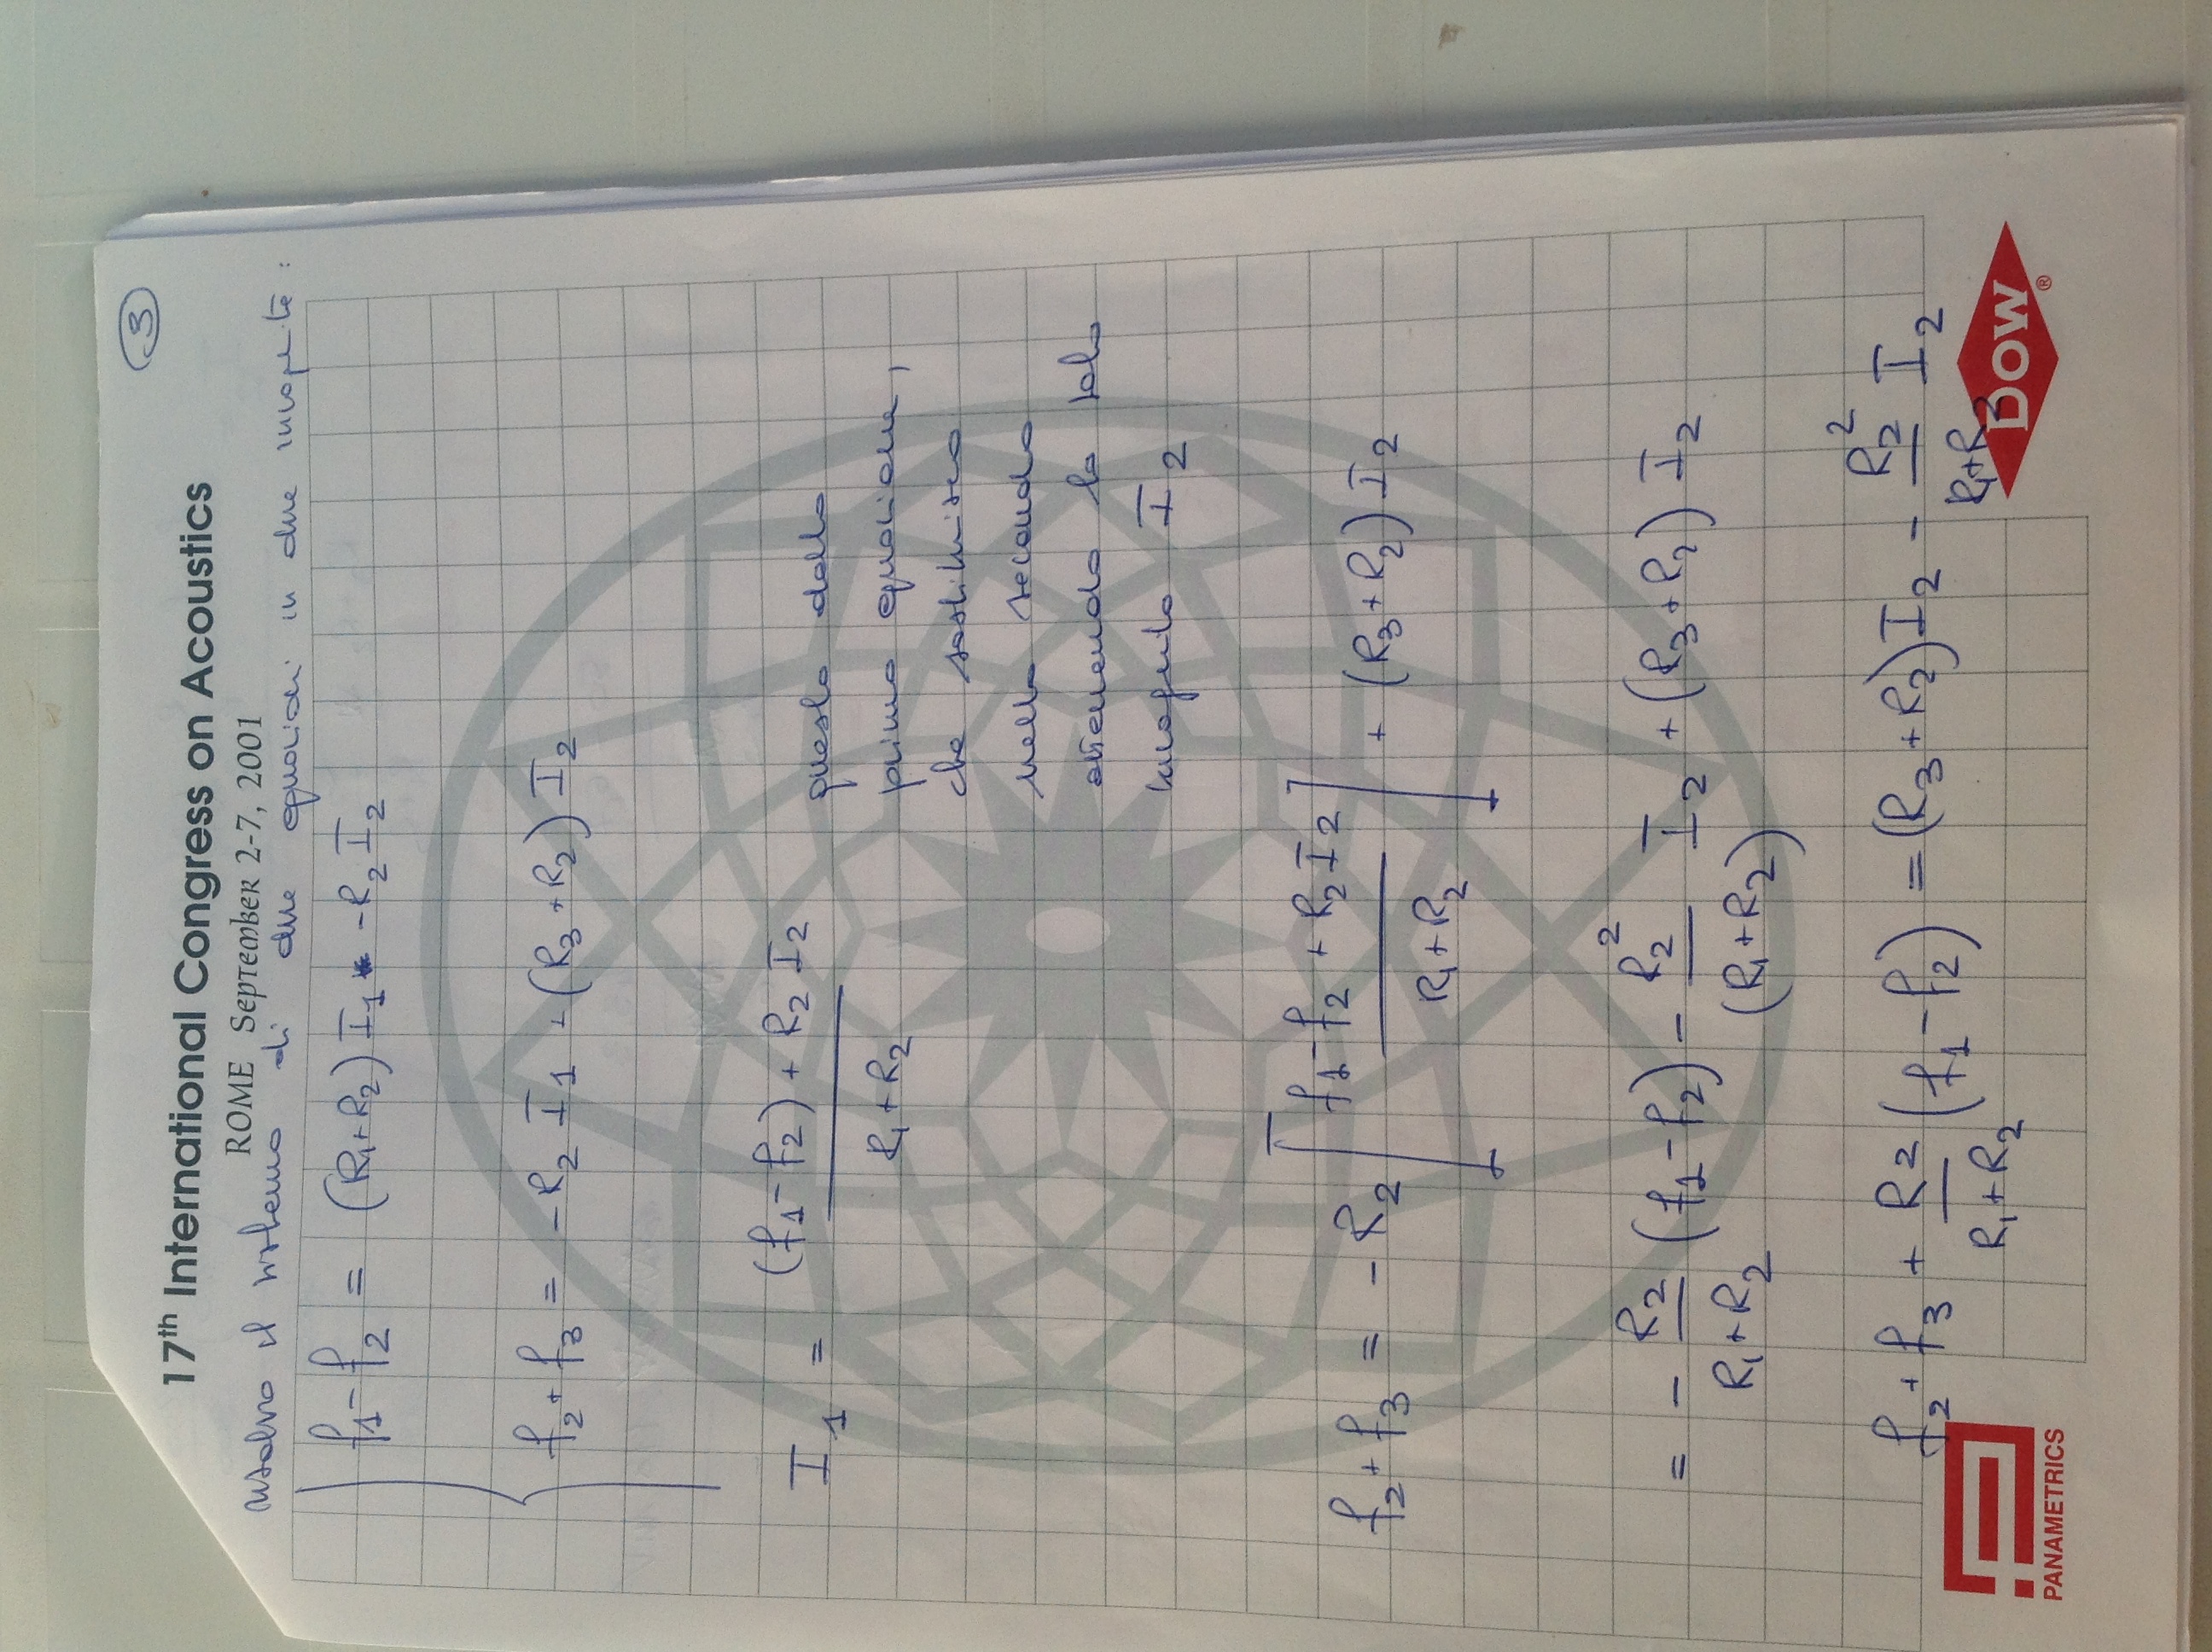 3
17th International Congress on Acoustics
ROME September 2-7, 2001
risolvo il sistema di due equazioni in due incognite :
f1 - f2 = (R1+R2) I1 - R2 I2
f2 + f3 = -R2 I1 + (R3+R2) I2
I1 = (f1-f2) + R2 I2 / R1+R2
questo dalla
prima equazione,
che sostituisco
nella seconda
ottenendo la sola
incognita I2
f2 + f3 = -R2 [f1-f2 + R2 I2 / R1+R2] + (R3+R2) I2
= - R2 / R1+R2 (f1-f2) - R2² / (R1+R2) I2 + (R3+R2) I2
f2 + f3 + R2 / R1+R2 (f1-f2) = (R3+R2) I2 - R2² / R1+R2 I2
PANAMETRICS
DOW ®